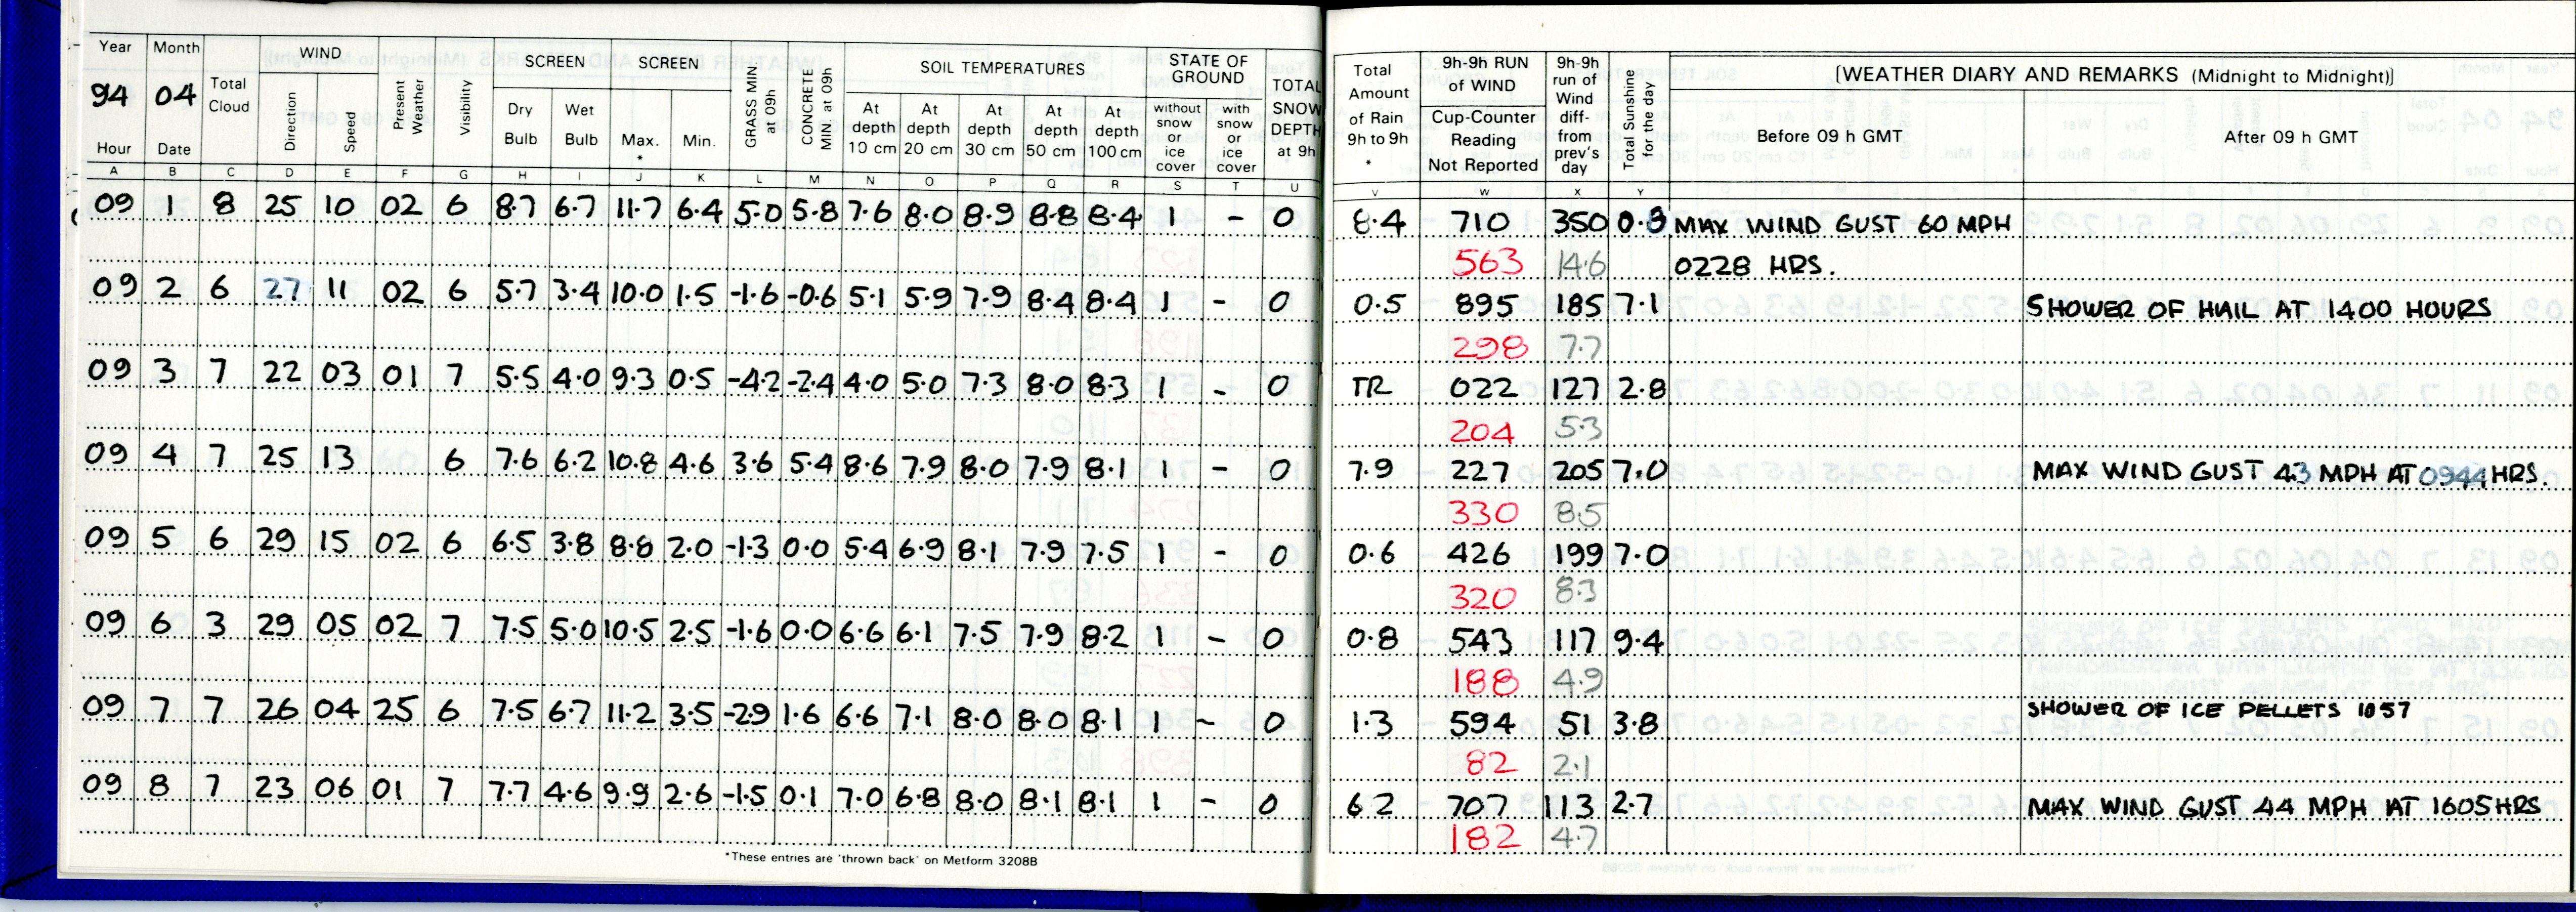 Year Month WIND SCREEN SCREEN SOIL TEMPERATURES STATE OF GROUND
94 04 Total Cloud Direction Speed Present Weather Visibility Dry Bulb Wet Bulb Max. * Min. GRASS MIN at 09h CONCRETE MIN. at 09h At depth 10 cm At depth 20 cm At depth 30 cm At depth 50 cm At depth 100 cm without snow or ice cover with snow or ice cover TOTAL SNOW DEPTH at 9h
Hour Date
A B C D E F G H I J K L M N O P Q R S T U
09 1 8 25 10 02 6 8.7 6.7 11.7 6.4 5.0 5.8 7.6 8.0 8.9 8.8 8.4 1 - 0
09 2 6 27 11 02 6 5.7 3.4 10.0 1.5 -1.6 -0.6 5.1 5.9 7.9 8.4 8.4 1 - 0
09 3 7 22 03 01 7 5.5 4.0 9.3 0.5 -4.2 -2.4 4.0 5.0 7.3 8.0 8.3 1 - 0
09 4 7 25 13 6 7.6 6.2 10.8 4.6 3.6 5.4 8.6 7.9 8.0 7.9 8.1 1 - 0
09 5 6 29 15 02 6 6.5 3.8 8.8 2.0 -1.3 0.0 5.4 6.9 8.1 7.9 7.5 1 - 0
09 6 3 29 05 02 7 7.5 5.0 10.5 2.5 -1.6 0.0 6.6 6.1 7.5 7.9 8.2 1 - 0
09 7 7 26 04 25 6 7.5 6.7 11.2 3.5 -2.9 1.6 6.6 7.1 8.0 8.0 8.1 1 - 0
09 8 7 23 06 01 7 7.7 4.6 9.9 2.6 -1.5 0.1 7.0 6.8 8.0 8.1 8.1 1 - 0
*These entries are 'thrown back' on Metform 3208B
Total Amount of Rain 9h to 9h * 9h-9h RUN of WIND Cup-Counter Reading Not Reported 9h-9h run of Wind diff- from prev's day Total Sunshine for the day [WEATHER DIARY AND REMARKS (Midnight to Midnight)]
Before 09 h GMT After 09 h GMT
V W X Y
8.4 710 350 MAX WIND GUST 60 MPH
563 14.6 0228 HRS.
0.5 895 185 7.1 SHOWER OF HAIL AT 1400 HOURS
298 7.7
TR 022 127 2.8
204 5.3
7.9 227 205 7.0 MAX WIND GUST 43 MPH AT 0944 HRS.
330 8.5
0.6 426 199 7.0
320 8.3
0.8 543 117 9.4
188 4.9
1.3 594 51 3.8 SHOWER OF ICE PELLETS
82 2.1
6.2 707 113 2.7 MAX WIND GUST 44 MPH AT 1605 HRS
182 4.7